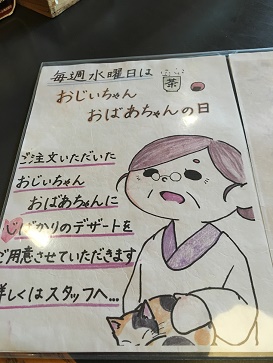 毎週水曜日は
茶
おじいちゃん
おばあちゃんの日
ご注文いただいた
おじいちゃん
おばあちゃんに
ばかりのデザートを
ご用意させていただきます
詳しくはスタッフへ…